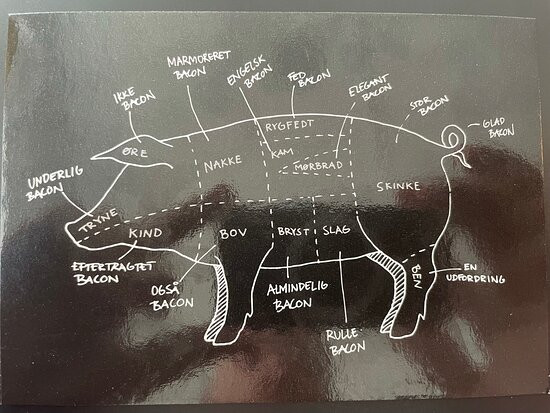 MARMORERET
BACON
ENGELSK
BACON
FED
BACON
ELEGANT
BACON
IKKE
BACON
STOR
BACON
GLAD
BACON
RYGFEDT
ØRE
NAKKE
KAM
MØRBRAD
UNDERLIG
BACON
SKINKE
TRYNE
KIND
BOV
BRYST
SLAG
EFTERTRAGTET
BACON
BEN
EN
UDFORDRING
OGSÅ
BACON
ALMINDELIG
BACON
RULLE-
BACON